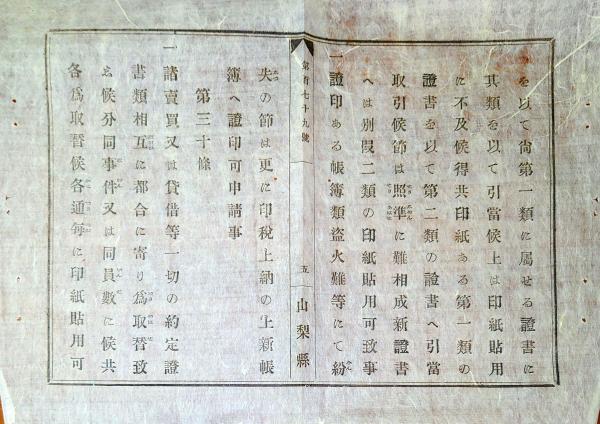 を以て尙第一類に属せる證書に
其類を以て引當候上は印紙貼用
に不及候得共印紙ある第一類の
證書を以て第二類の證書へ引當
取引候節は照準に難相成新證書
へは別段二類の印紙貼用可致事
一證印ある帳簿類盜火難等にて紛
第百七十九號 五 山梨縣
失の節は更に印税上納の上新帳
簿へ證印可申請事
第三十條
一諸賣買又は貸借等一切の約定證
書類相互に都合に寄り爲取替致
候分同事件又は同員數に候共
各爲取替候各通每に印紙貼用可